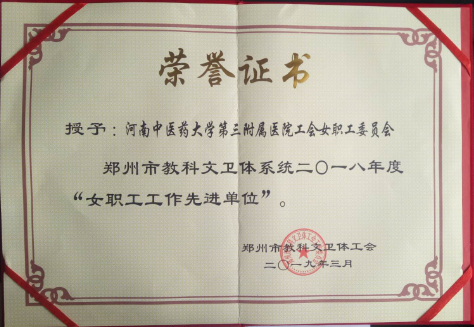 荣誉证书
授予：河南中医药大学第三附属医院工会女职工委员会
郑州市教科文卫体系统二〇一八年度
“女职工工作先进单位”。
郑州市教科文卫体工会
二〇一九年三月